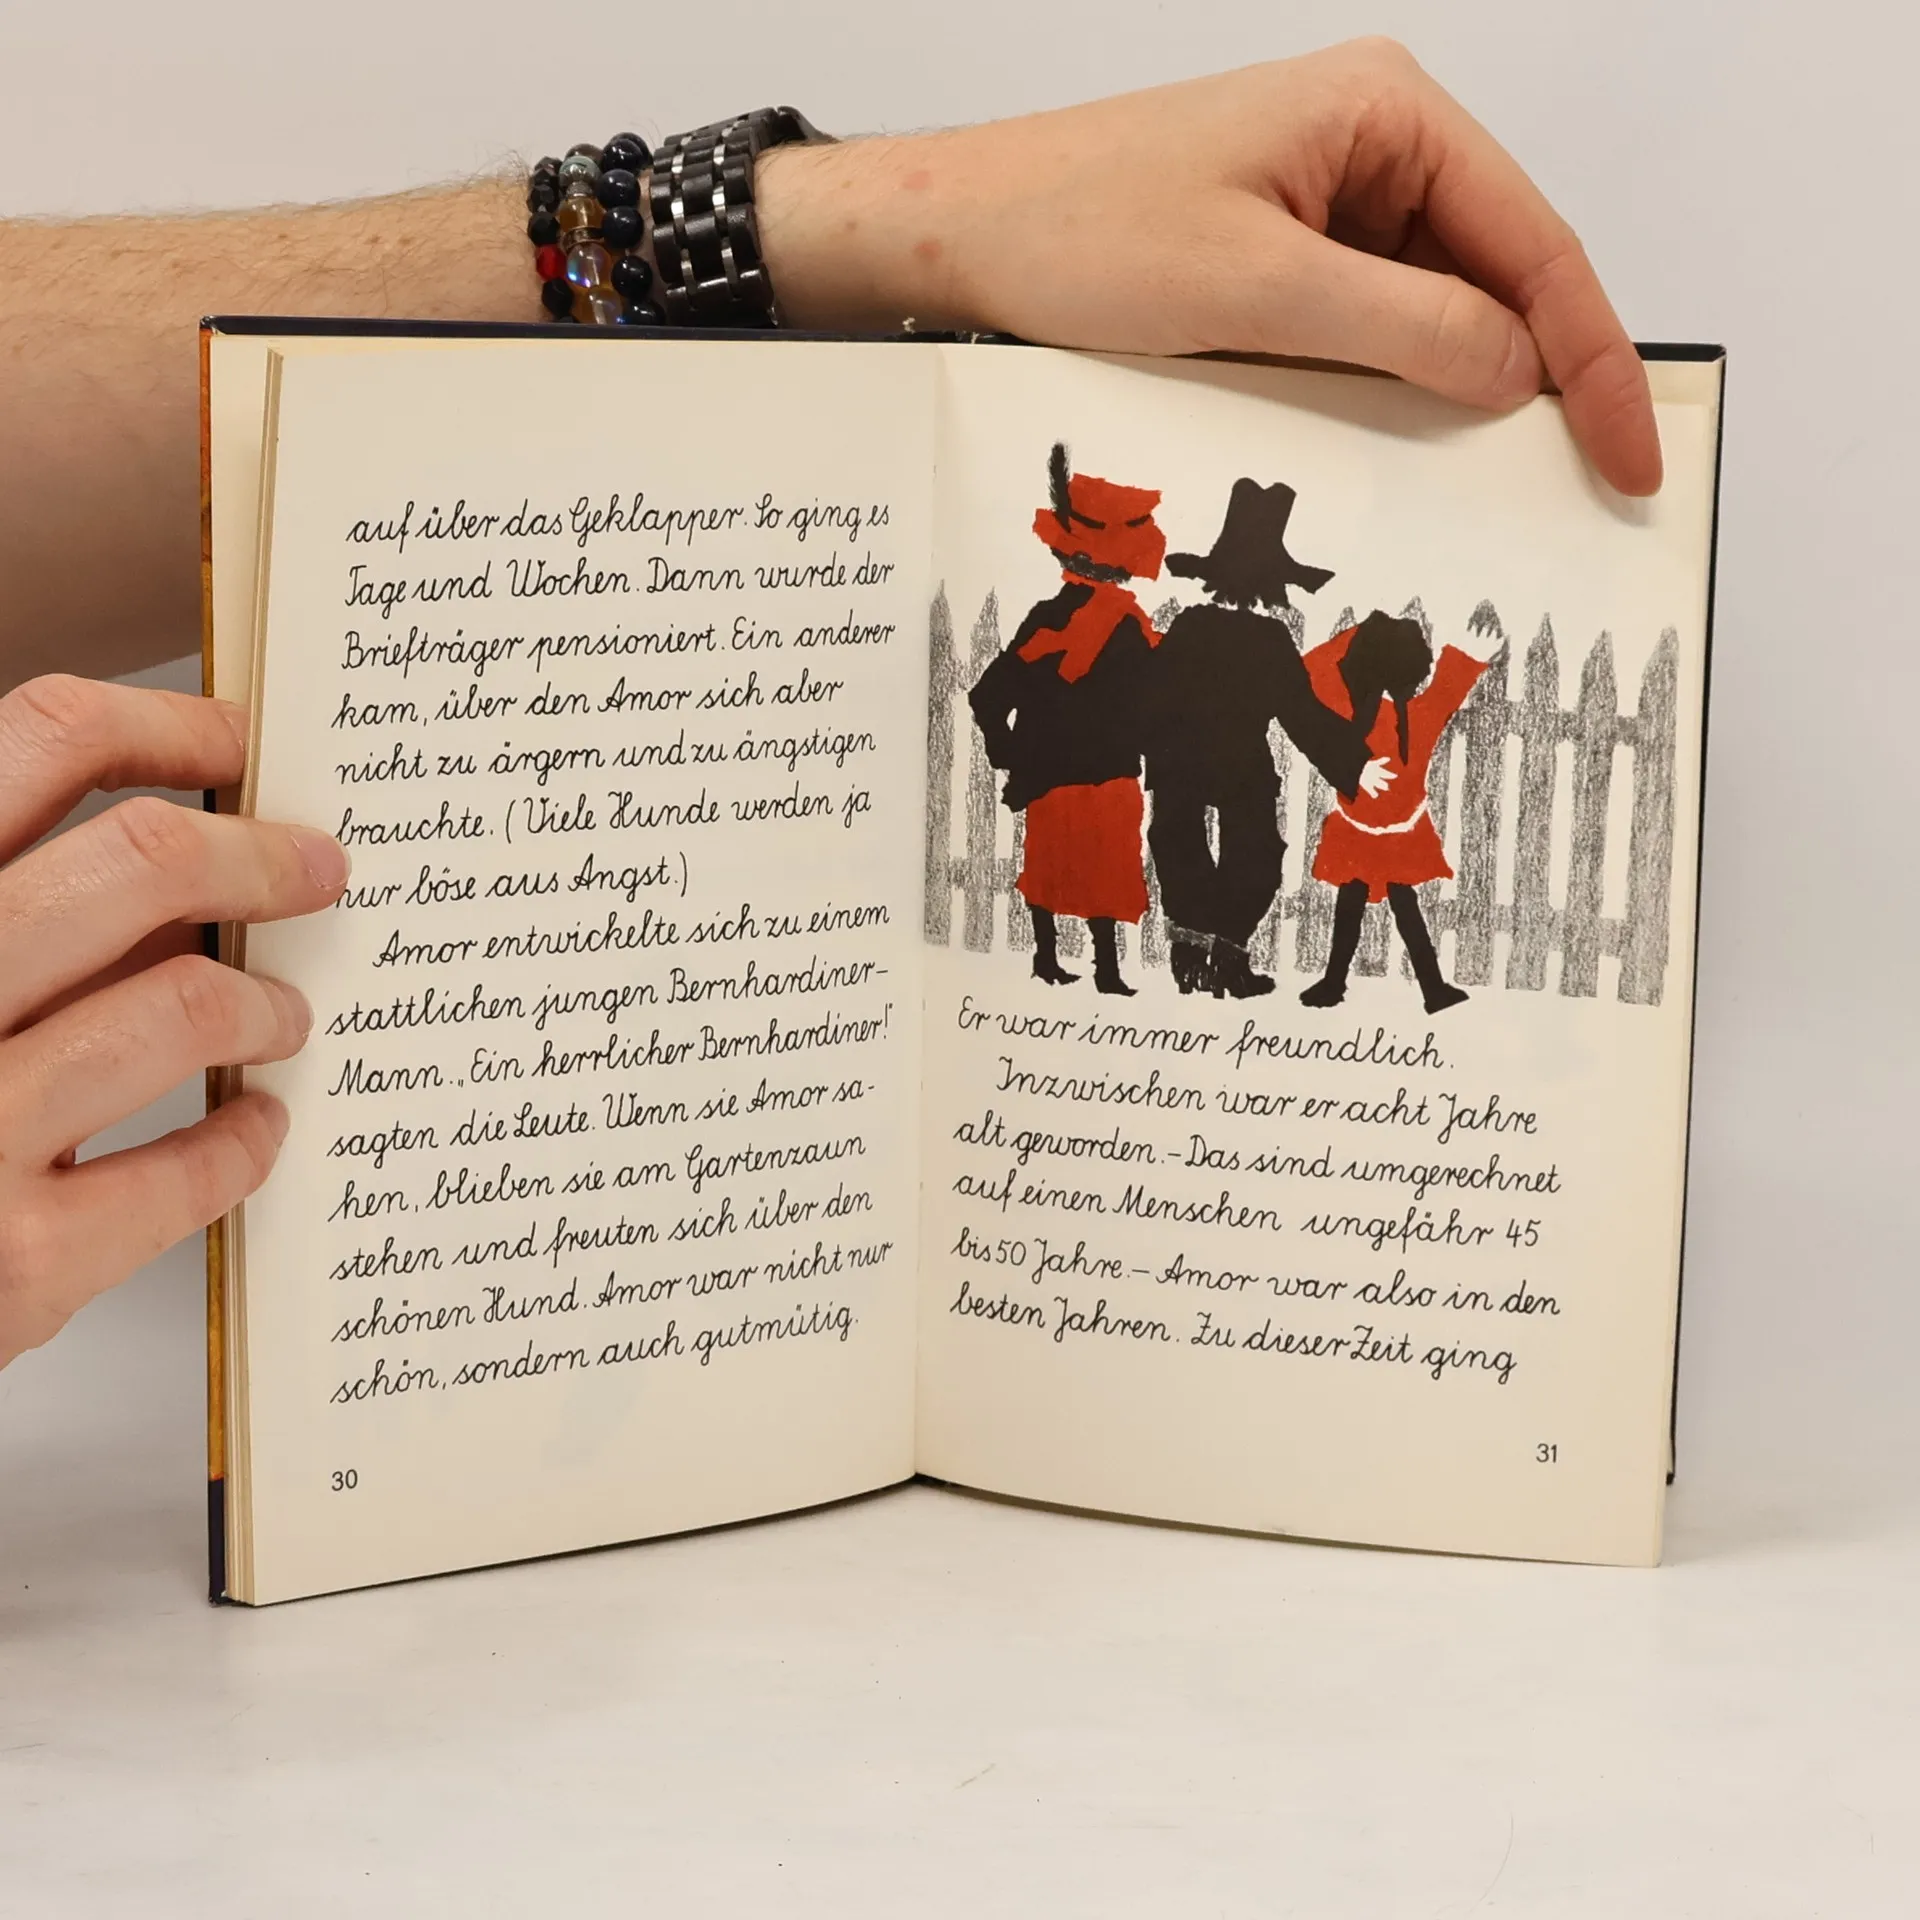 auf über das Geklapper. So ging es
Tage und Wochen. Dann wurde der
Briefträger pensioniert. Ein anderer
kam, über den Amor sich aber
nicht zu ärgern und zu ängstigen
brauchte. (Viele Hunde werden ja
nur böse aus Angst.)
Amor entwickelte sich zu einem
stattlichen jungen Bernhardiner-
Mann. „Ein herrlicher Bernhardiner!"
sagten die Leute. Wenn sie Amor sa-
hen, blieben sie am Gartenzaun
stehen und freuten sich über den
schönen Hund. Amor war nicht nur
schön, sondern auch gutmütig.
30
Er war immer freundlich.
Inzwischen war er acht Jahre
alt geworden. – Das sind umgerechnet
auf einen Menschen ungefähr 45
bis 50 Jahre. – Amor war also in den
besten Jahren. Zu dieser Zeit ging
31